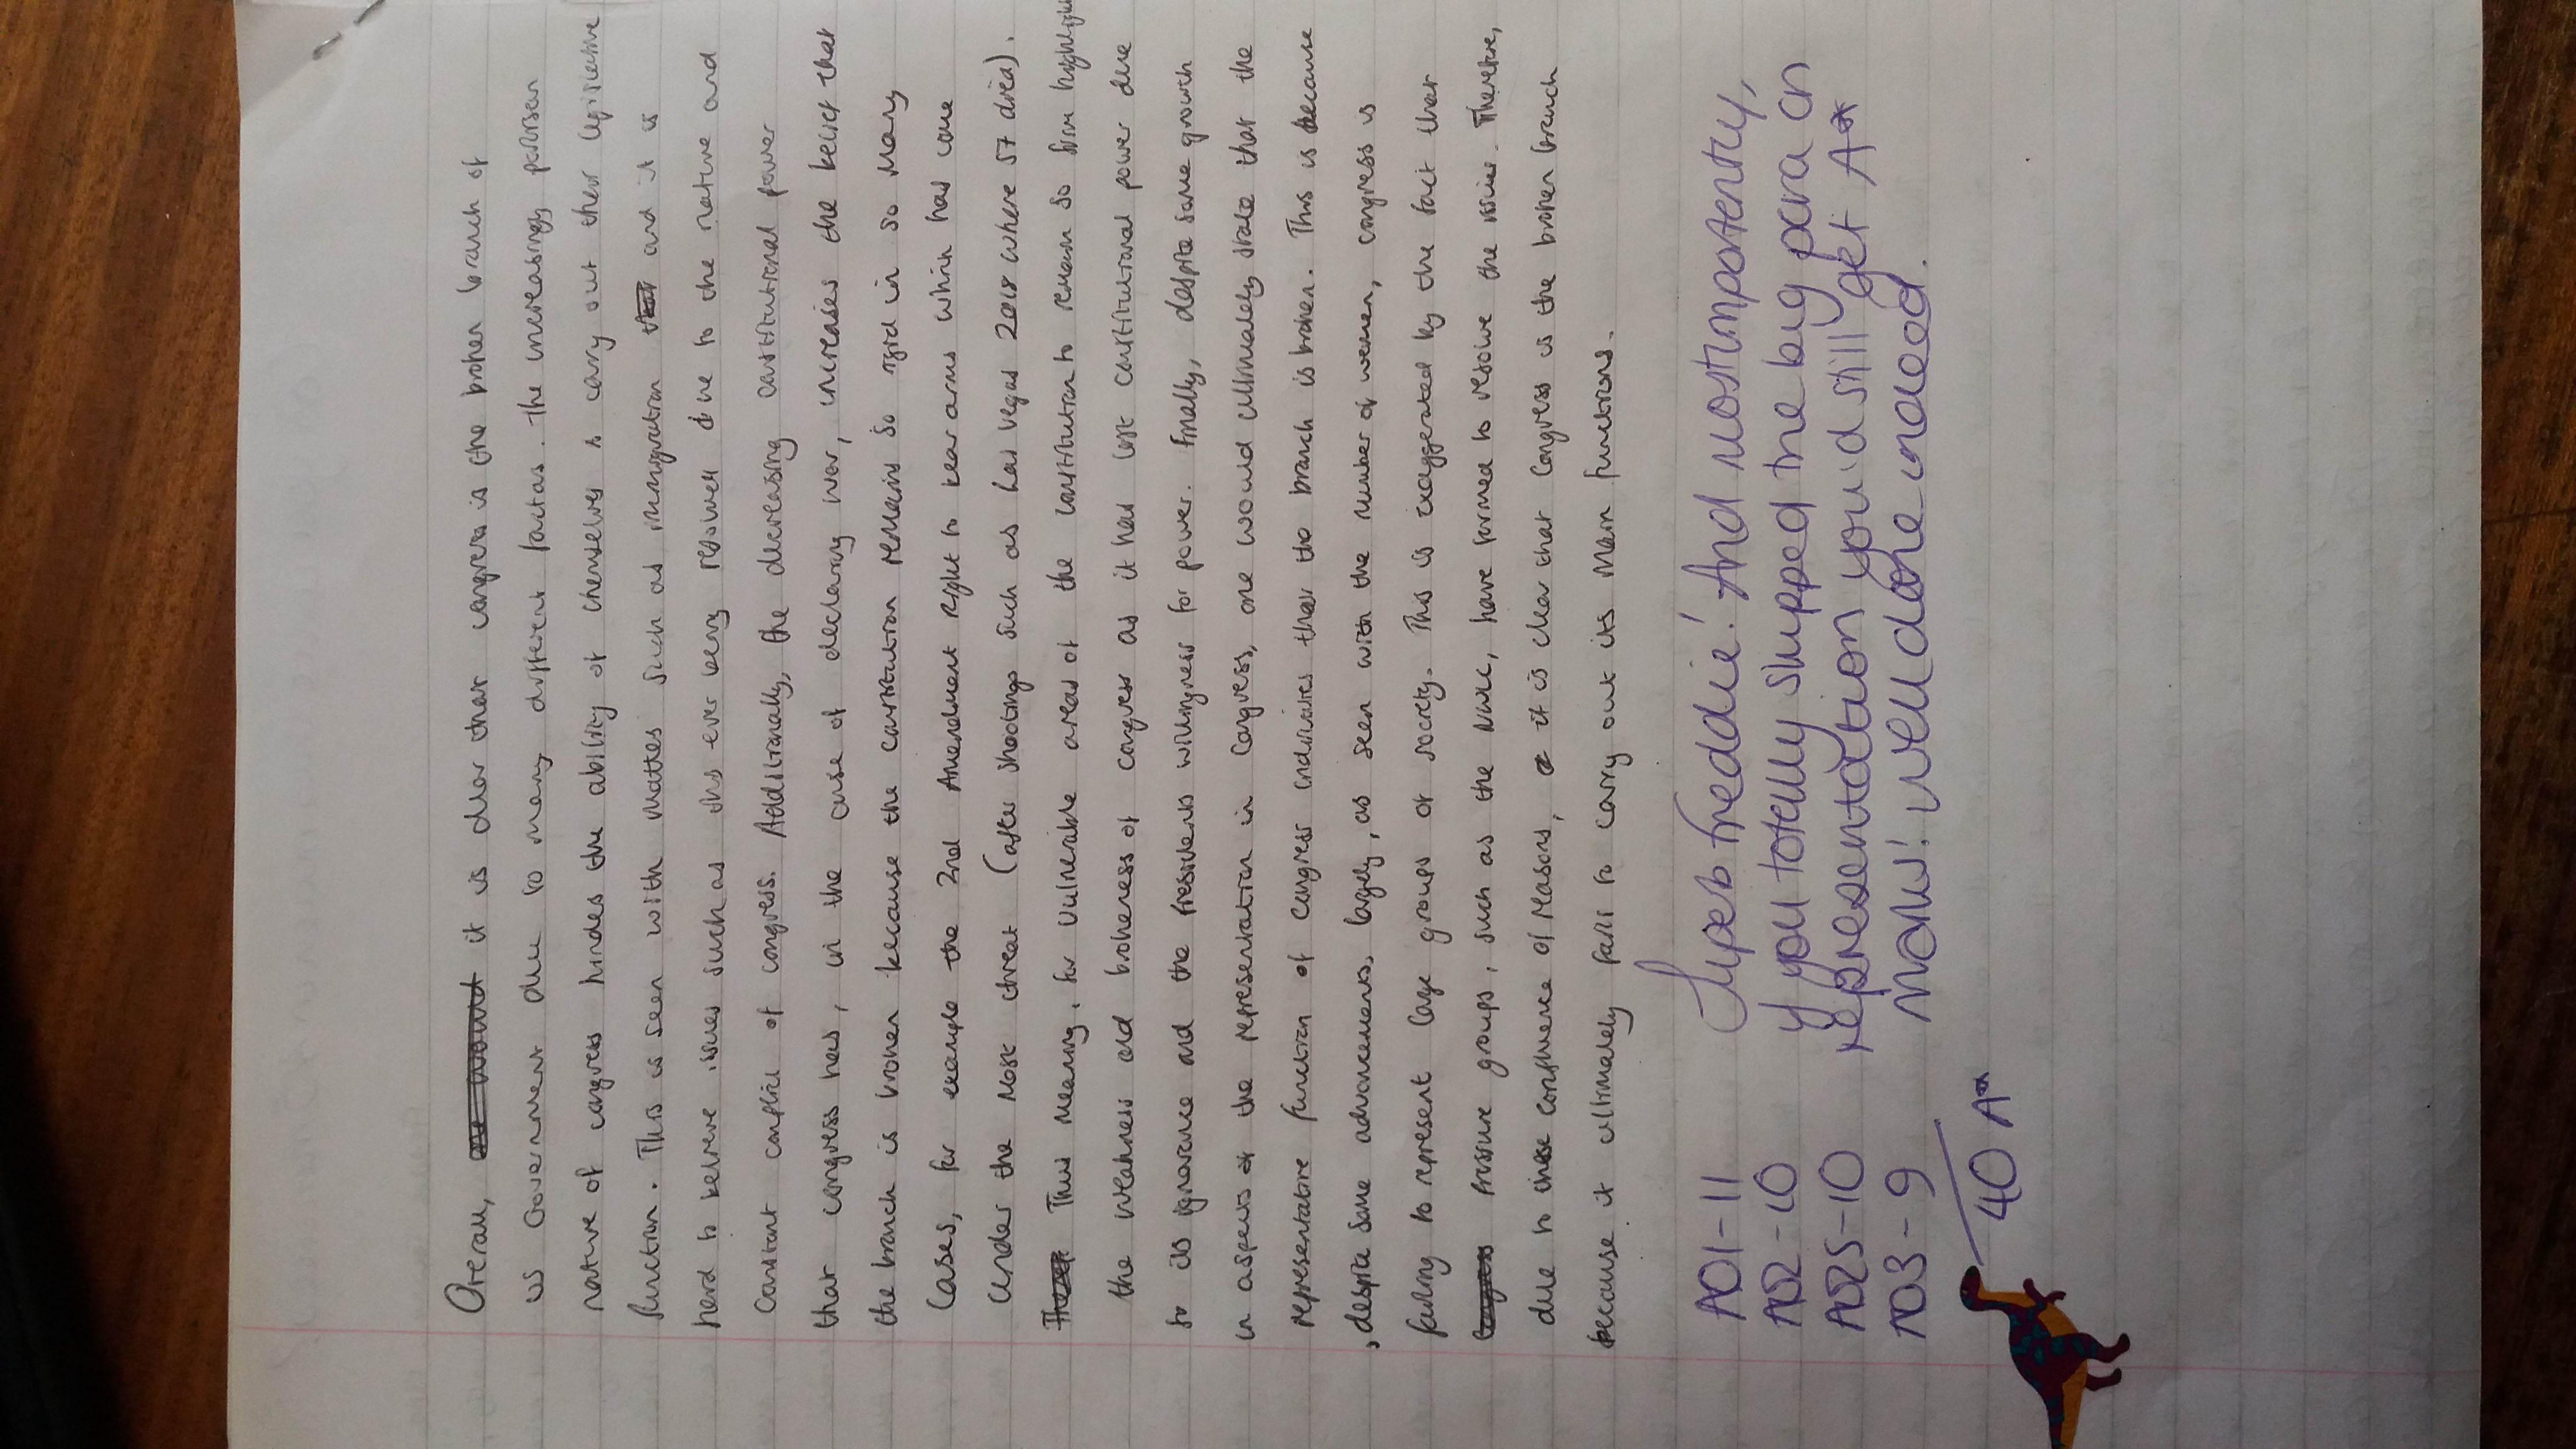 Overall, it is clear that congress is the broken branch of
US Government due to many different factors. The increasingly partisan
nature of congress hinders the ability of themselves to carry out their legislative
function. This is seen with matters such as immigration and it is
hard to believe issues such as this ever being resolved due to the nature and
constant conflict of congress. Additionally, the decreasing constitutional power
that congress has, in the case of declaring war, increases the belief that
the branch is broken because the constitution remains so rigid in so many
cases, for example the 2nd Amendment right to bear arms which has come
under the most threat (after shootings such as Las Vegas 2018 where 57 died).
This meaning, for vulnerable areas of the constitution to remain so firm
the weakness and brokenness of congress as it has lost constitutional power due
to its ignorance and the Presidents willingness for power. Finally, despite some growth
in aspects of the representation in Congress, one would ultimately state that the
representative function of Congress indicates that the branch is broken. This is because
, despite some advancements, largely, as seen with the number of women, congress is
failing to represent large groups of society. This is exaggerated by the fact that
pressure groups, such as the NWPC, have formed to resolve the issue. Therefore,
due to these confluence of reasons, it is clear that Congress is the broken branch
because it ultimately fails to carry out its main functions.
AO1-11
AO2-10
AO2S-10
AO3-9
40 A*
Superb Freddie! And most importantly,
if you totally skipped the big para on
representation you'd still get A*
marks! Well done indeed.